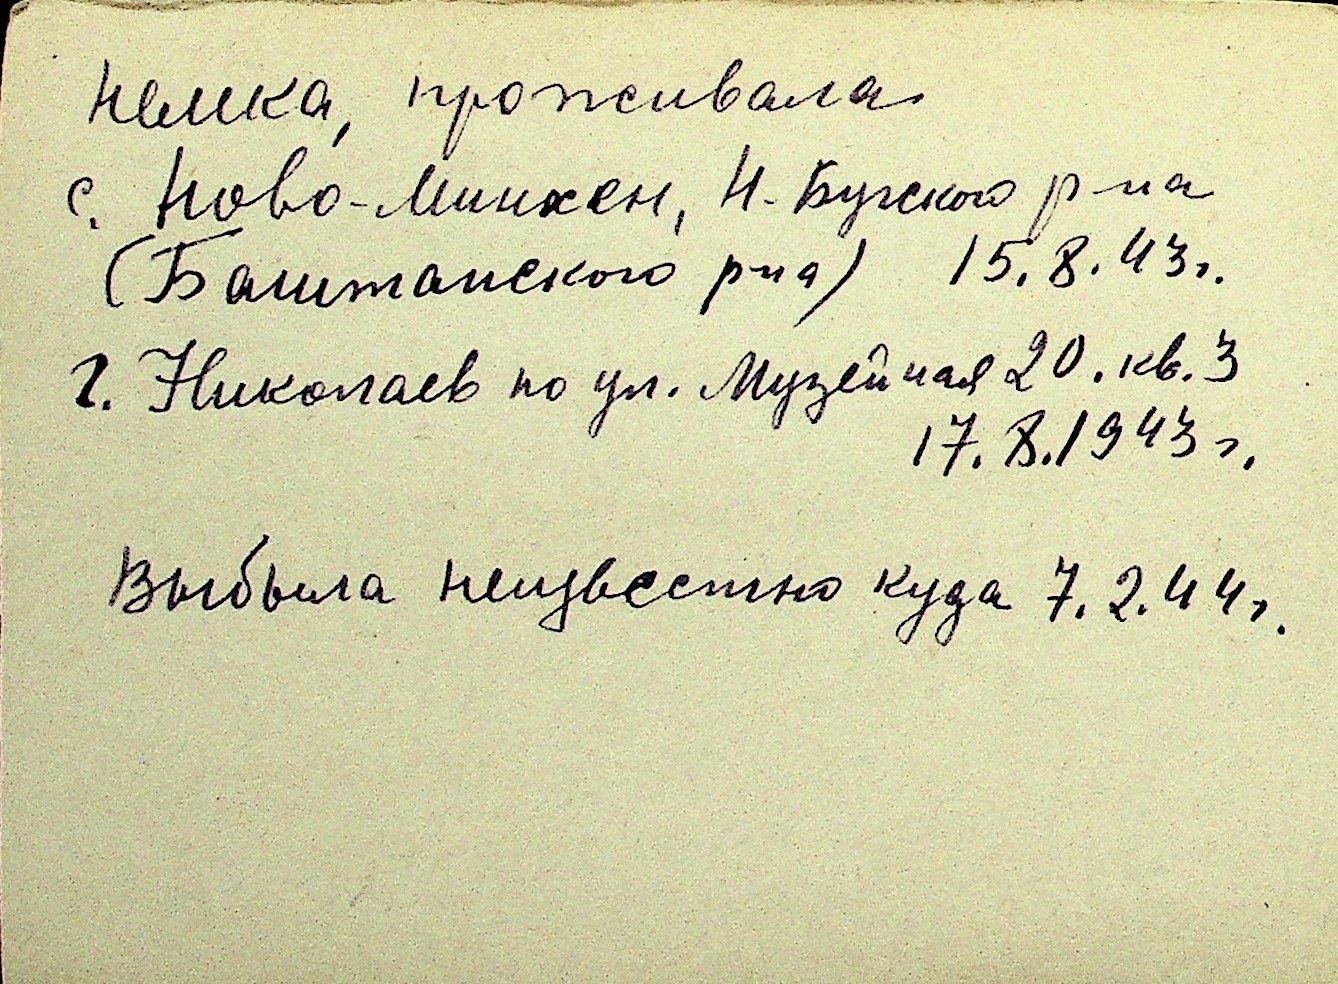 Немка, проживала
с. Ново-Минхен, Н. Бугского р-на
(Баштанского р-на) 15.8.43г.
г. Николаев по ул. Музейная 20. кв. 3
17.8.1943г.
Выбыла неизвестно куда 7.2.44г.